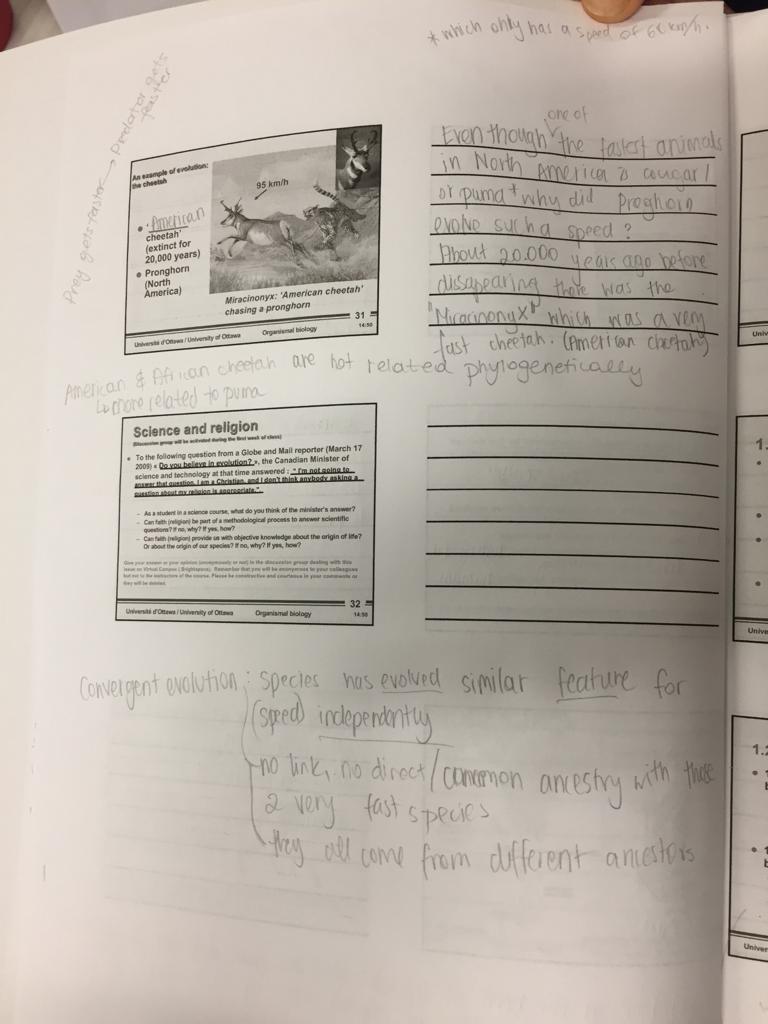 * which only has a speed of 60 km/h.
Prey gets faster → Predator gets
faster
An example of evolution:
the cheetah
• 'American
cheetah'
(extinct for
20,000 years)
• Pronghorn
(North
America)
95 km/h
Miracinonyx: 'American cheetah'
chasing a pronghorn
31
14:50
Université d'Ottawa / University of Ottawa Organismal biology
one of
Even though the fastest animals
in North America is cougar/
or puma* why did Proghorn
evolve such a speed?
About 20.000 years ago before
dissapearing there was the
"Miracinonyx" which was a very
fast cheetah. (American cheetah)
American & African cheetah are not related phylogenetically
↳ more related to puma
Science and religion
(Discussion group will be activated during the first week of class)
• To the following question from a Globe and Mail reporter (March 17
2009) « Do you believe in evolution? », the Canadian Minister of
science and technology at that time answered : " I'm not going to
answer that question. I am a Christian, and I don't think anybody asking a
question about my religion is appropriate."
– As a student in a science course, what do you think of the minister's answer?
– Can faith (religion) be part of a methodological process to answer scientific
questions? If no, why? If yes, how?
– Can faith (religion) provide us with objective knowledge about the origin of life?
Or about the origin of our species? If no, why? If yes, how?
Give your answer or your opinion (anonymously or not) in the discussion group dealing with this
issue on Virtual Campus (Brightspace). Remember that you will be anonymous to your colleagues
but not to the instructors of the course. Please be constructive and courteous in your comments or
they will be deleted.
32
14:50
Université d'Ottawa / University of Ottawa Organismal biology
Convergent evolution: species has evolved similar feature for
(speed) independently
no link, no direct/common ancestry with those
2 very fast species
they all come from different ancestors
Univ
1.
Unive
1.2
Univer